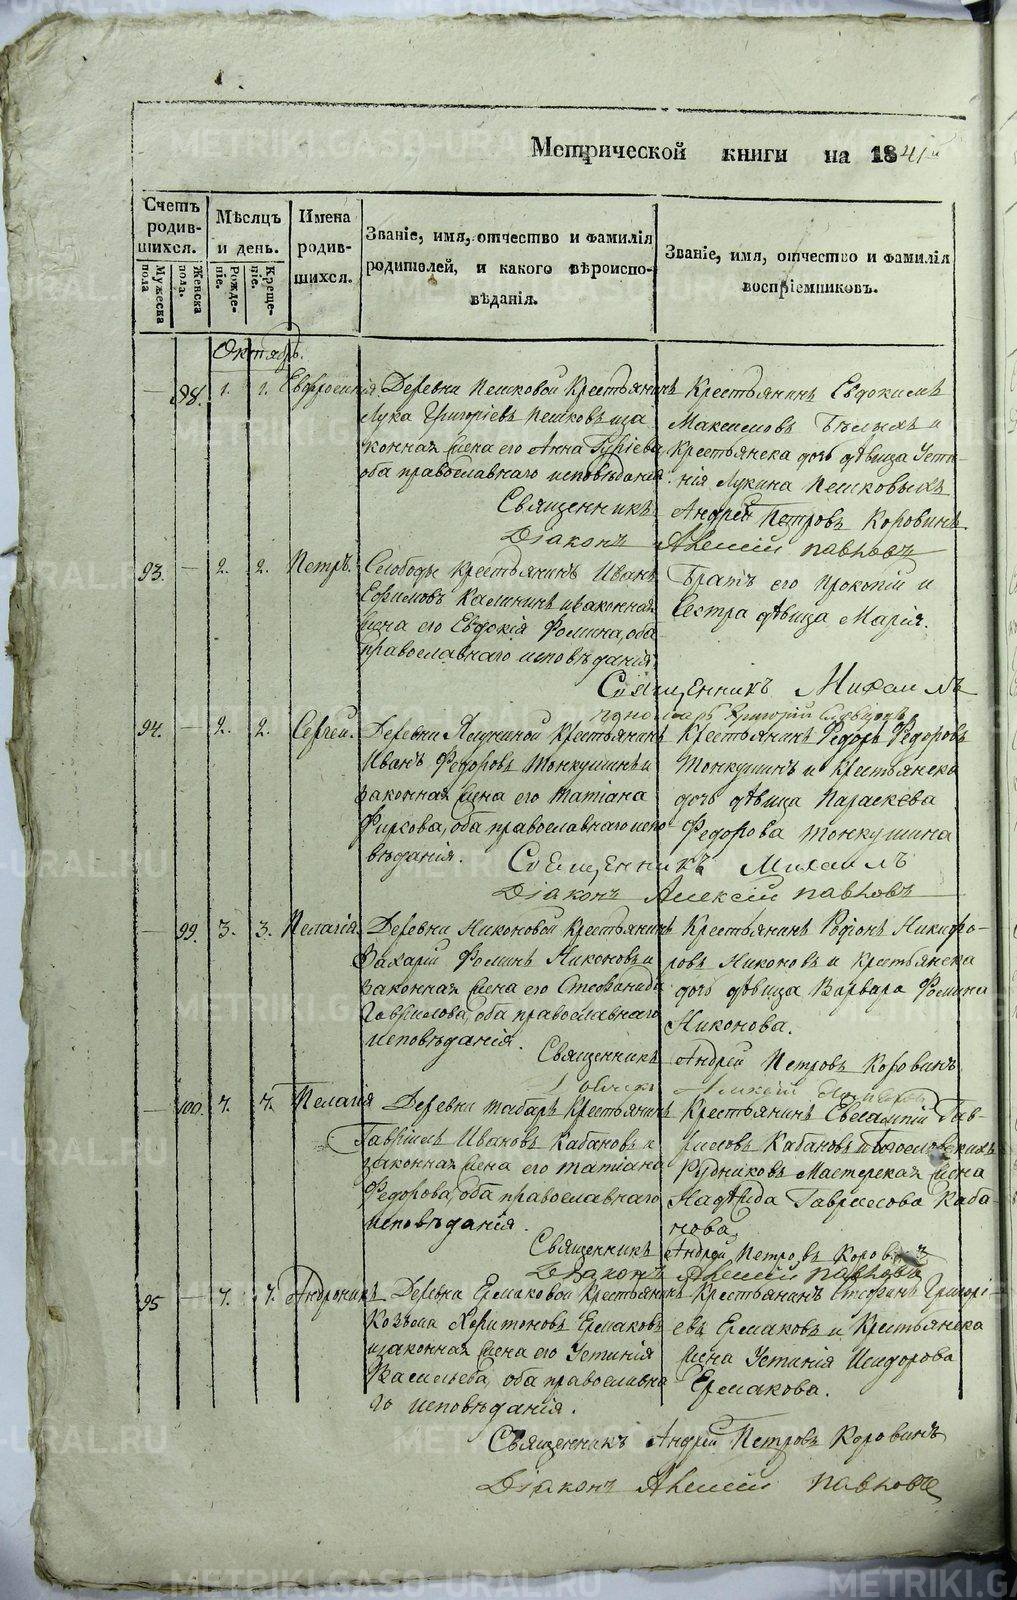 Метрической книги на 1841
Счетъ родив-шихся.
Мужеска пола
Женска пола.
Мѣсяцъ и день.
Рожде-ніе.
Креще-ніе.
Имена родив-шихся.
Званіе, имя, отчество и фамилія
родителей, и какого вѣроиспо-
вѣданія.
Званіе, имя, отчество и фамилія
воспріемниковъ.
Октябрь.
— 98. 1. 1. Евфросинія
Деревни Пешковой Крестьянинъ
Лука Григоріевъ Пешковъ и за
конная жена его Анна Гуріева
оба православнаго исповѣданія
Крестьянинъ Евдокимъ
Максимовъ Бѣлыхъ и
Крестьянска дочь дѣвица Усти-
нія Лукина Пешковыхъ
Священникъ Андрей Петровъ Коровинъ
Діаконъ Алексій Павловъ
93. — 2. 2. Петръ.
Слободы Крестьянинъ Иванъ
Ефимовъ Калининъ и законная
жена его Евдокія Фомина, оба
православнаго исповѣданія
Братъ его Прокопій и
Сестра дѣвица Марія.
Священникъ Михаилъ
пономарь Григорій
94. — 2. 2. Сергей.
Деревни Крестьянинъ
Иванъ Федоровъ Тонкушинъ и
законная жена его Татіана
Фиркова, оба православнаго испо-
вѣданія.
Крестьянинъ Федоръ Федоровъ
Тонкушинъ и Крестьянска
дочь дѣвица Параскева
Федорова Тонкушина
Священникъ Михаилъ
Діаконъ Алексій Павловъ
— 99. 3. 3. Пелагія.
Деревни Никоновой Крестьянинъ
Захарій Фоминъ Никоновъ и
законная жена его Стефанида
Гаврилова, оба православнаго
исповѣданія.
Крестьянинъ Родіонъ Никифо-
ровъ Никоновъ и Крестьянска
дочь дѣвица Варвара Фомина
Никонова.
Священникъ Андрей Петровъ Коровинъ
Діаконъ Алексій Павловъ
— 100. 4. 4. Пелагія
Деревни Табаръ Крестьянинъ
Гавріилъ Ивановъ Кабановъ и
законная жена его Татіана
Федорова, оба православнаго
исповѣданія.
Крестьянинъ Евлампій Гав-
риловъ Кабановъ и Богословскихъ
Рудниковъ Мастерская жена
Надежда Гавриилова Каба-
нова,
Священникъ Андрей Петровъ Коровинъ
Діаконъ Алексій Павловъ
95 — 4. 4. Андроникъ
Деревни Ермаковой Крестьянинъ
Козьма Харитоновъ Ермаковъ
и законная жена его Устинія
Васильева, оба православна
го исповѣданія.
Крестьянинъ Стефанъ Григорі-
евъ Ермаковъ и Крестьянска
жена Устинія Исидорова
Ермакова.
Священникъ Андрей Петровъ Коровинъ
Діаконъ Алексій Павловъ
METRIKI.GASO-URAL.RU